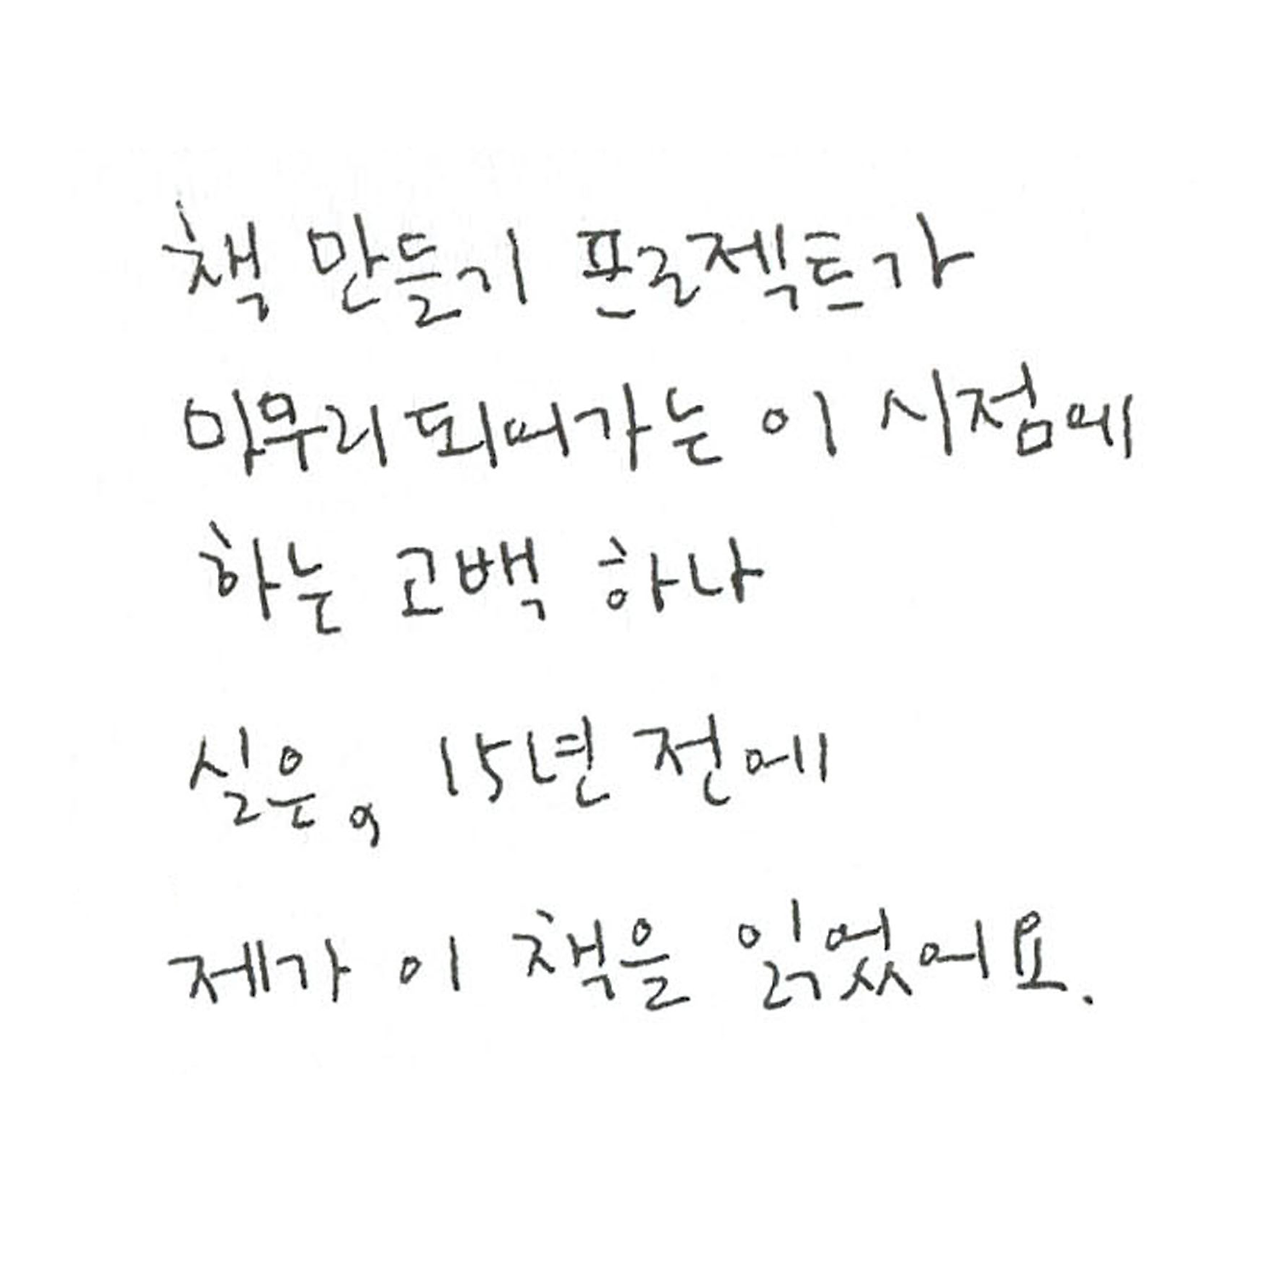 책 만들기 프로젝트가
마무리되어가는 이 시점에
하는 고백 하나
실은, 15년 전에
제가 이 책을 읽었어요.